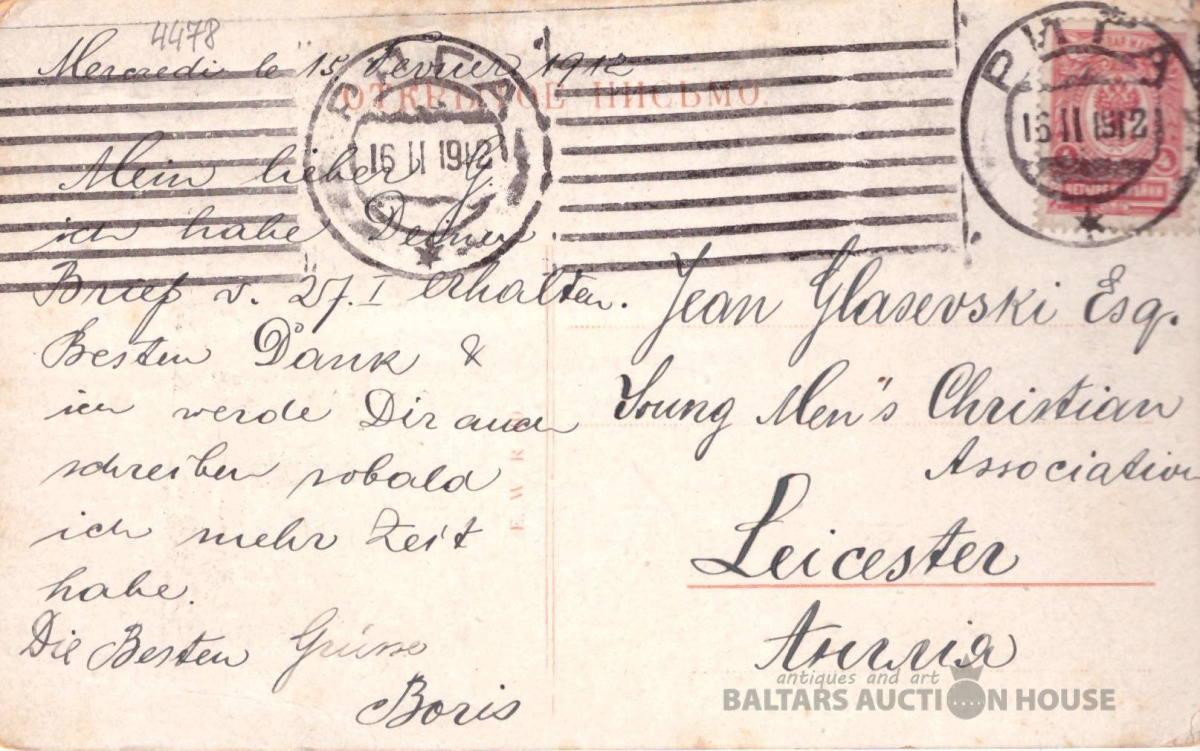 4478
Mercredi le 15 Fevrier 1912
ОТКРЫТОЕ ПИСЬМО.
РИГА
16 II 1912
РИГА
16 II 1912
ЧЕТЫРЕ КОПѢЙКИ
Mein lieber J
ich habe Deinen
Brief v. 27. I erhalten.
Besten Dank &
ich werde Dir auch
schreiben sobald
ich mehr Zeit
habe.
Die Besten Grüsse
Boris
E. W. R.
Jean Glasevski Esq.
Young Men's Christian
Association
Leicester
Англія
antiques and art
BALTARS AUCTION HOUSE